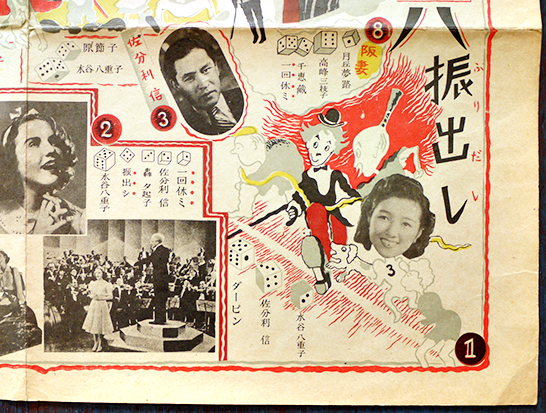 振出し
ふりだし
1
3
ダービン
佐分利 信
水谷 八重子
8
阪妻
月丘夢路
高峰三枝子
千恵蔵
一回休ミ
佐分利信
3
原 節子
水谷 八重子
2
一回休ミ
佐分利 信
轟 夕起子
振出シ
水谷 八重子